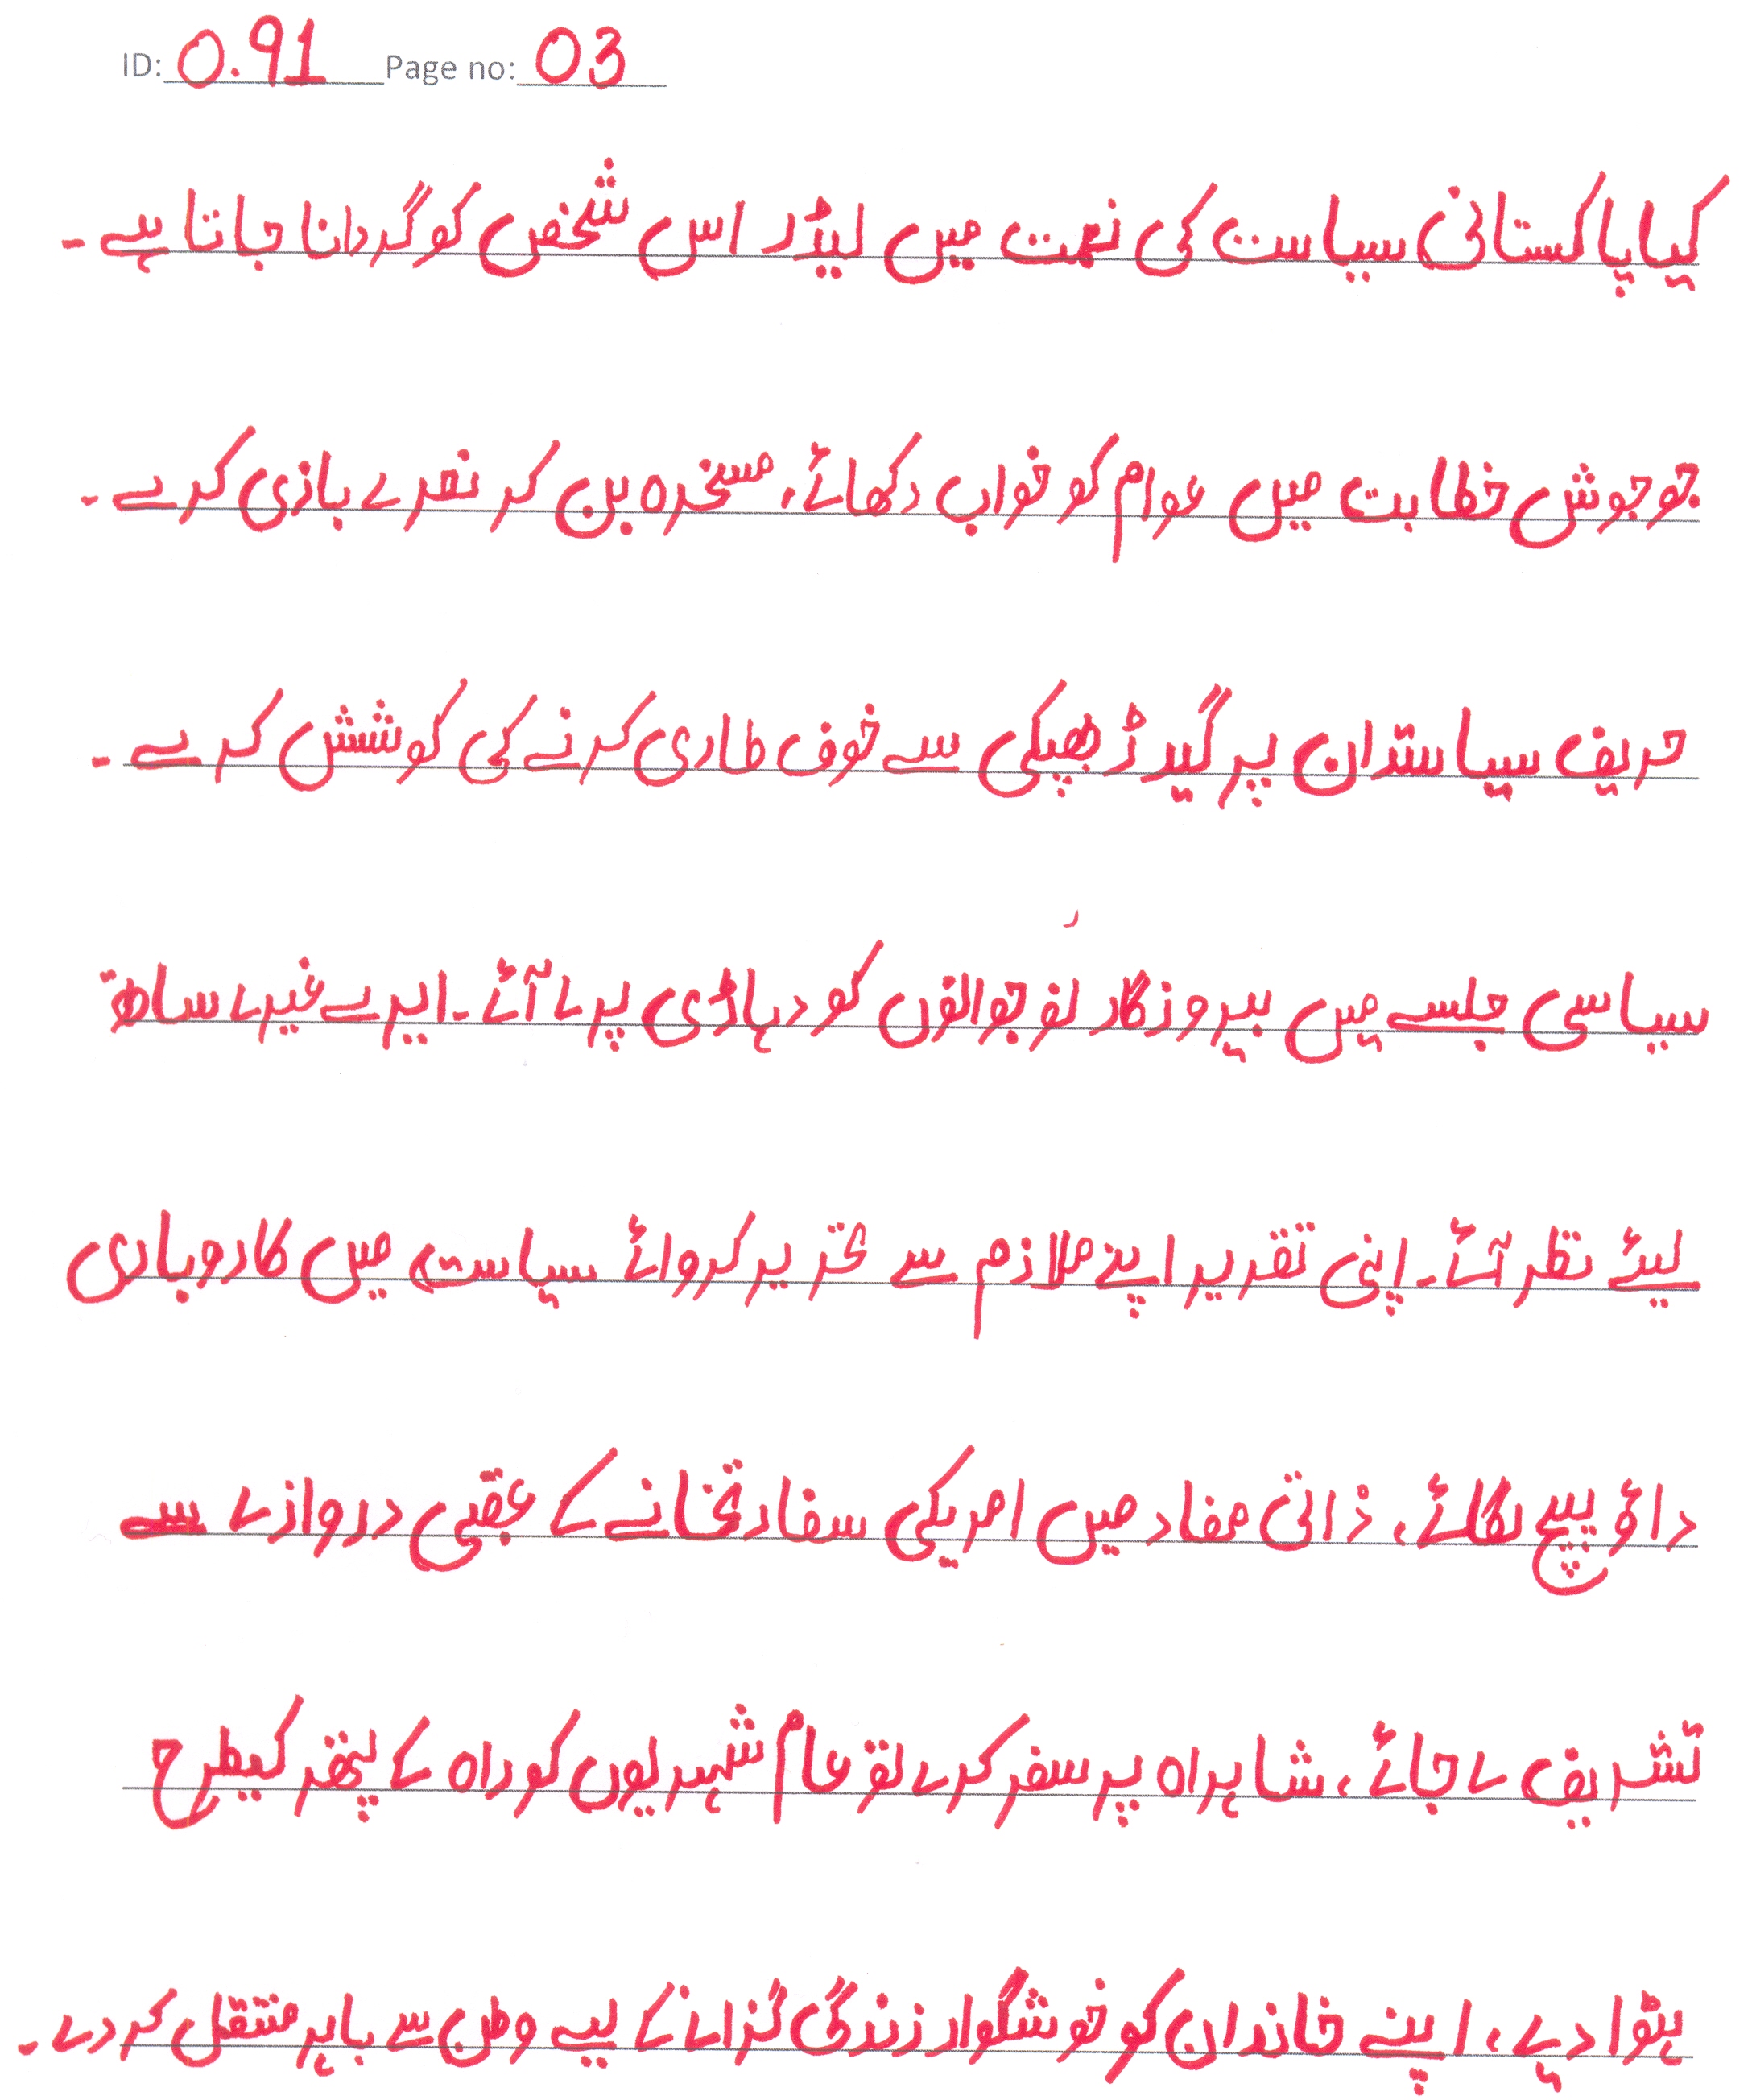 ID: 0.91 Page no: 03
کیا پاکستانی سیاست کی نعمت میں لیڈر اس شخص کو گردانا جاتا ہے۔
جو جوش خطابت میں عوام کو خواب دکھائے، مسخرہ بن کر نعرے بازی کرے۔
حریف سیاستدان پر گیدڑ بھپکی سے خوف طاری کرنے کی کوشش کرے۔
سیاسی جلسے میں بیروزگار نوجوانوں کو دہاڑی پر لے آئے۔ ایرے غیرے ساتھ
لیئے نظر آئے۔ اپنی تقریر اپنے ملازم سے تحریر کروائے سیاست میں کاروباری
داؤ پیچ لگائے، ذاتی مفاد میں امریکی سفارتخانے کے عقبی دروازے سے
تشریف لے جائے، شاہراہ پر سفر کرے تو عام شہریوں کو راہ کے پتھر کیطرح
ہٹوا دے، اپنے خاندان کو خوشگوار زندگی گزارنے کے لیے وطن سے باہر منتقل کر دے۔